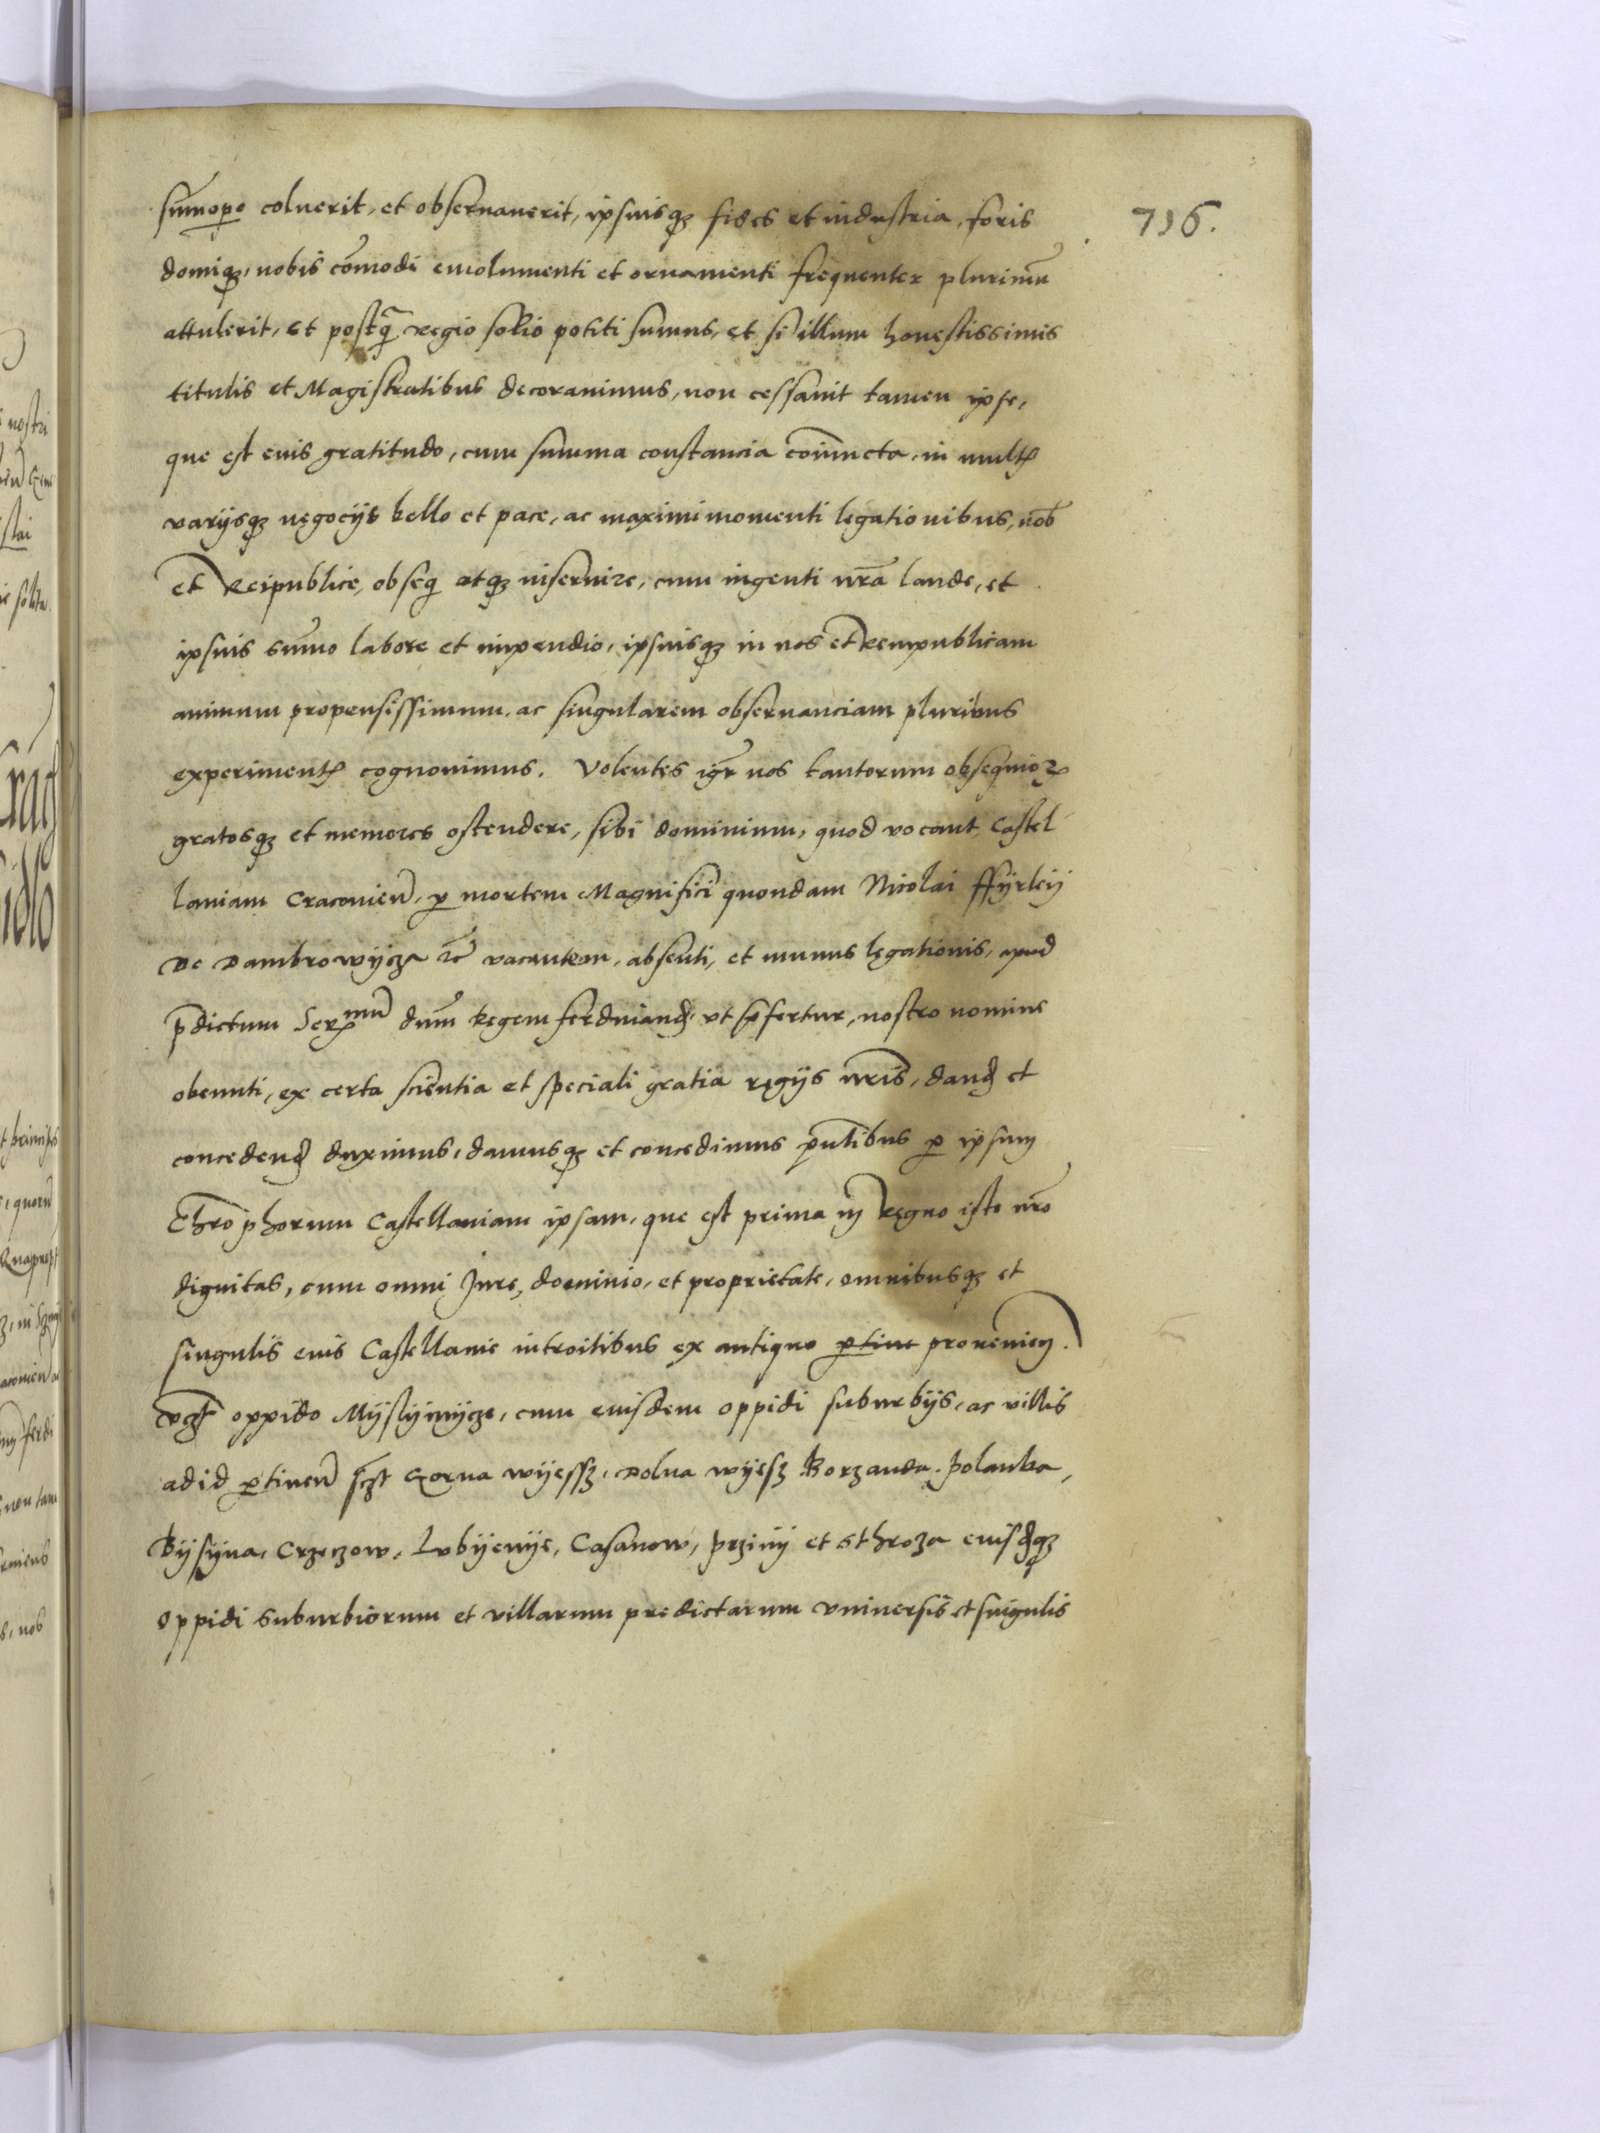 716.
sūmopē coluerit, et obseruauerit, ipsiusqꝫ fides et industria, foris
domiqꝫ, nobis cōmodi emolumenti et ornamenti frequenter plurimū
attulerit, et postq̄ regio solio potiti sumus, et si illum honestissimis
titulis et Magistratibus decorauimus, non cessauit tamen ipse,
que est eius gratitudo, cum summa constancia coniūcta, in multꝭ
varijsqꝫ negocijs bello et pace, ac maximi momenti legationibus, nob̄
et Reipublice, obseq̄ atqꝫ inseruire, cum ingenti nr̄a laude, et
ipsius sūmo labore et impendio, ipsiusqꝫ in nos et Rempublicam
animum propensissimum, ac singularem obseruanciam pluribus
experimentꝭ cognouimus. Volentes igr̄ nos tantorum obsequioꝝ
gratosqꝫ et memores ostendere, sibi dominium, quod vocant Castel
laniam Cracovieñ, ꝑ mortem Magnifici quondam Nicolai Ffyrleij
De Dambrowycza ꝛc̄ vacantem, absenti, et munus legationis, apud
p̄dictum Serᵐᵘ̄ dn̄m Regem ferdinandꝭ, vt p̄fertur, nostro nomine
obeunti, ex certa scientia et speciali gratia regijs nr̄is, dandꝭ et
concedendꝭ duximus, damusqꝫ et concedimus p̄ntibus ꝑ ipsum
Chr̄ophorum Castellaniam ipsam, que est prima in Regno isto nr̄o
dignitas, cum omni Jure, dominio, et proprietate, omnibusqꝫ et
singulis eius Castellanie introitibus ex antiquo ꝑtine prouenieñ.
vcꝫt oppido Myslymycze, cum eiusdem oppidi suburbijs, ac villis
ad id ꝑtineñ scꝫt Gorna wyessz, Dolna wyesz Borzanda. Polanka,
Bysyna, Crzeczow, Lubyenye, Casanow, Przimy et Sthroza eiusdqꝫ
Oppidi suburbiorum et villarum predictarum vniuersis et singulis